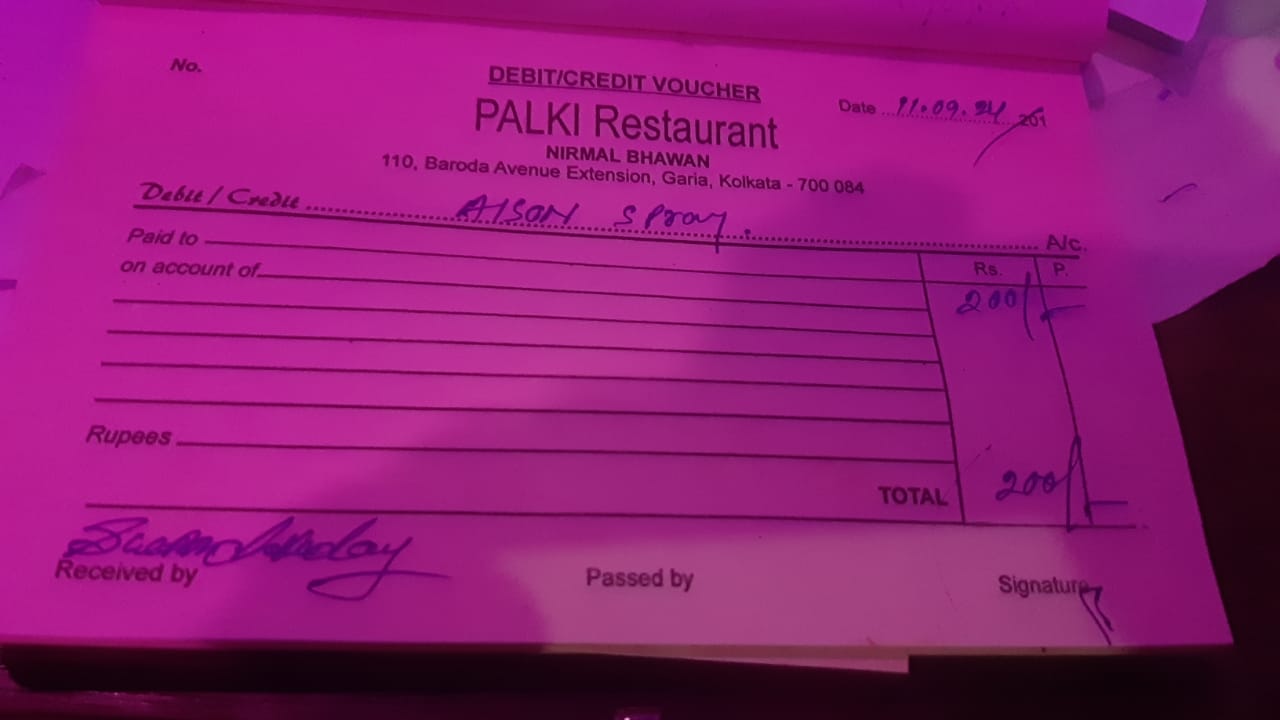 No.
DEBIT/CREDIT VOUCHER
PALKI Restaurant
Date 11.09.24 201
NIRMAL BHAWAN
110, Baroda Avenue Extension, Garia, Kolkata - 700 084
Debit / Credit AISON SPray. A/c.
Paid to Rs. P.
on account of 200/-
Rupees
TOTAL 200/-
Received by Passed by Signature